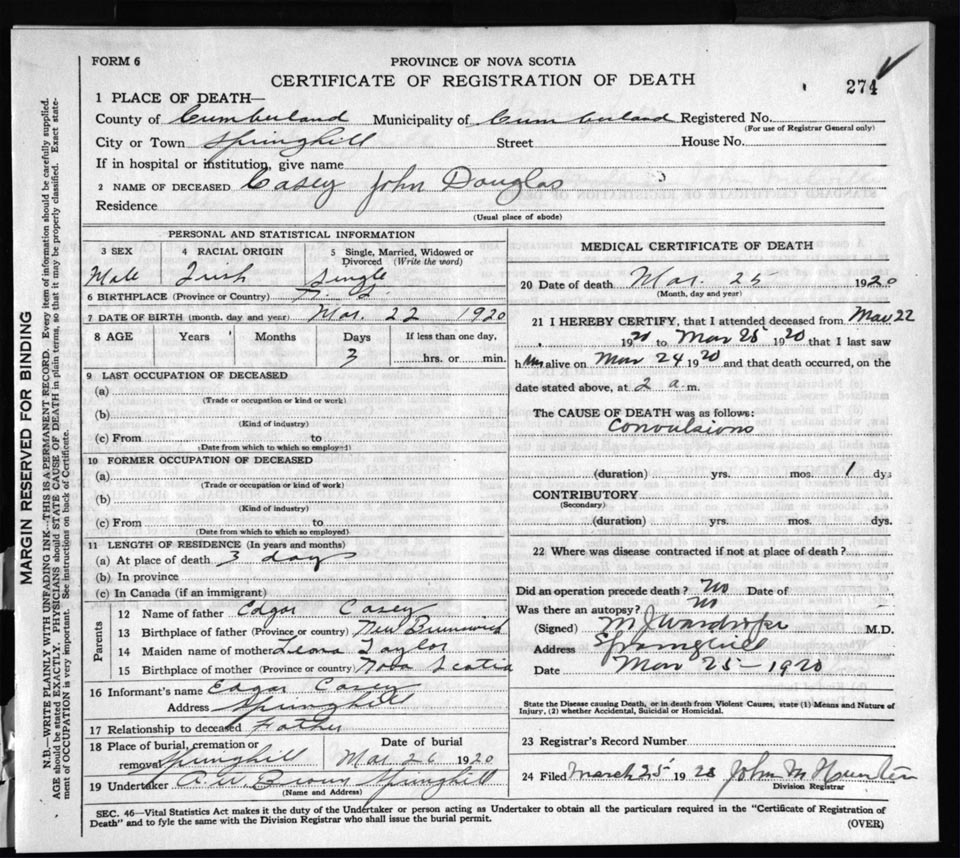 FORM 6
PROVINCE OF NOVA SCOTIA
CERTIFICATE OF REGISTRATION OF DEATH
274
1 PLACE OF DEATH—
County of Cumberland Municipality of Cumberland Registered No.
(For use of Registrar General only)
City or Town Springhill Street House No.
If in hospital or institution, give name
2 NAME OF DECEASED Casey John Douglas
Residence
(Usual place of abode)
PERSONAL AND STATISTICAL INFORMATION
3 SEX 4 RACIAL ORIGIN 5 Single, Married, Widowed or Divorced (Write the word)
Male Irish Single
6 BIRTHPLACE (Province or Country) N. S.
7 DATE OF BIRTH (month, day and year) Mar. 22 1920
8 AGE Years Months Days If less than one day,
3 hrs. or min.
9 LAST OCCUPATION OF DECEASED
(a)
(Trade or occupation or kind or work)
(b)
(Kind of industry)
(c) From to
(Date from which to which so employed)
10 FORMER OCCUPATION OF DECEASED
(a)
(Trade or occupation or kind of work)
(b)
(Kind of industry)
(c) From to
(Date from which to which so employed)
11 LENGTH OF RESIDENCE (In years and months)
(a) At place of death 3 days
(b) In province
(c) In Canada (if an immigrant)
Parents
12 Name of father Edgar Casey
13 Birthplace of father (Province or country) New Brunswick
14 Maiden name of mother Leona Taylor
15 Birthplace of mother (Province or country) Nova Scotia
16 Informant's name Edgar Casey
Address Springhill
17 Relationship to deceased Father
18 Place of burial, cremation or removal Springhill Date of burial Mar 26 1920
19 Undertaker Brown Springhill
(Name and Address)
MEDICAL CERTIFICATE OF DEATH
20 Date of death Mar. 25 1920
(Month, day and year)
21 I HEREBY CERTIFY, that I attended deceased from Mar 22
1920 to Mar 25 1920 that I last saw
him alive on Mar 24 1920 and that death occurred, on the
date stated above, at 2 a.m.
The CAUSE OF DEATH was as follows:
Convulsions
(duration) yrs. mos. 1 dys
CONTRIBUTORY
(Secondary)
(duration) yrs. mos. dys.
22 Where was disease contracted if not at place of death?
Did an operation precede death? No Date of
Was there an autopsy? No
(Signed) M J Wardrope M.D.
Address Springhill
Date Mar 25 - 1920
State the Disease causing Death, or in death from Violent Causes, state (1) Means and Nature of
Injury, (2) whether Accidental, Suicidal or Homicidal.
23 Registrar's Record Number
24 Filed March 25 1920 John M Hunter
Division Registrar
SEC. 46—Vital Statistics Act makes it the duty of the Undertaker or person acting as Undertaker to obtain all the particulars required in the "Certificate of Registration of
Death" and to fyle the same with the Division Registrar who shall issue the burial permit.
(OVER)
MARGIN RESERVED FOR BINDING
N.B.—WRITE PLAINLY WITH UNFADING INK—THIS IS A PERMANENT RECORD. Every item of information should be carefully supplied.
AGE should be stated EXACTLY. PHYSICIANS should STATE CAUSE OF DEATH in plain terms, so that it may be properly classified. Exact state-
ment of OCCUPATION is very important. See instructions on back of Certificate.